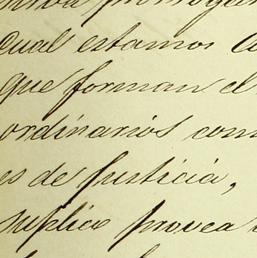 cual estamos
que forman el
ordinarios com
es de Justicia,
suplico provea